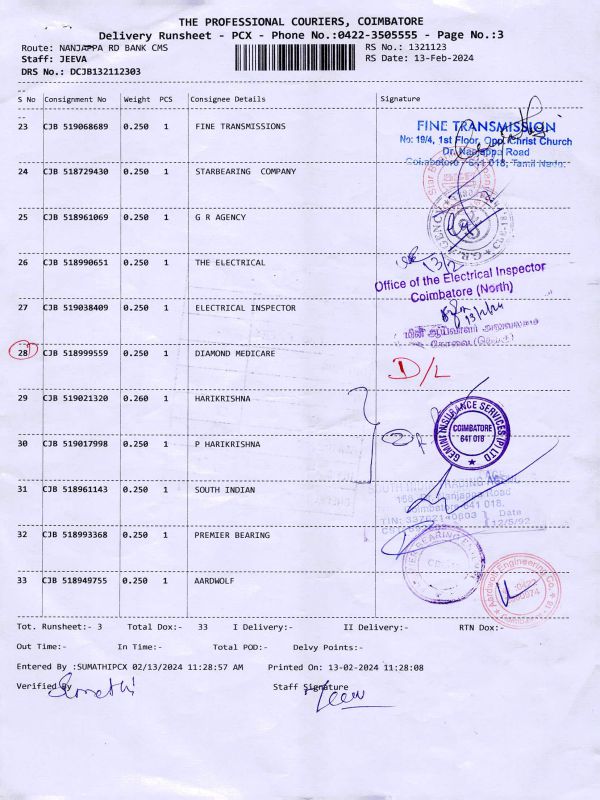 THE PROFESSIONAL COURIERS, COIMBATORE
Delivery Runsheet - PCX - Phone No.:0422-3505555 - Page No.:3
Route: NANJAPPA RD BANK CMS
RS No.: 1321123
Staff: JEEVA
RS Date: 13-Feb-2024
DRS No.: DCJB132112303
S No Consignment No Weight PCS Consignee Details Signature
23 CJB 519068689 0.250 1 FINE TRANSMISSIONS
FINE TRANSMISSION
No: 19/4, 1st Floor, Opp. Christ Church
Dr. Nanjappa Road
Coimbatore - 641 018, Tamil Nadu.
24 CJB 518729430 0.250 1 STARBEARING COMPANY
25 CJB 518961069 0.250 1 G R AGENCY
26 CJB 518990651 0.250 1 THE ELECTRICAL
13/2
Office of the Electrical Inspector
Coimbatore (North)
27 CJB 519038409 0.250 1 ELECTRICAL INSPECTOR
13/2/24
28 CJB 518999559 0.250 1 DIAMOND MEDICARE D/L
29 CJB 519021320 0.260 1 HARIKRISHNA
GEMINI INSURANCE SERVICES (P) LTD
COIMBATORE
641 018
30 CJB 519017998 0.250 1 P HARIKRISHNA
31 CJB 518961143 0.250 1 SOUTH INDIAN
Nanjappa Road
Coimbatore-641 018.
Date
12/5/92
32 CJB 518993368 0.250 1 PREMIER BEARING
33 CJB 518949755 0.250 1 AARDWOLF
Aardwolf Engineering Co.
Tot. Runsheet:- 3 Total Dox:- 33 I Delivery:- II Delivery:- RTN Dox:-
Out Time:- In Time:- Total POD:- Delvy Points:-
Entered By :SUMATHIPCX 02/13/2024 11:28:57 AM Printed On: 13-02-2024 11:28:08
Verified By Staff Signature